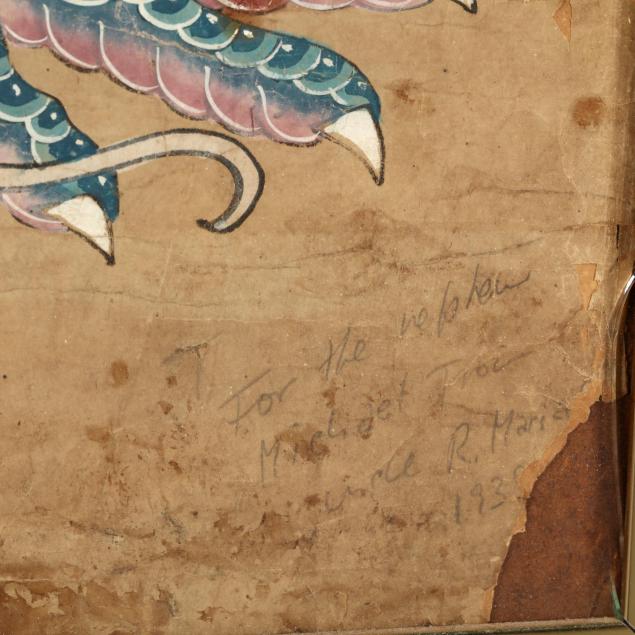 For the nephew
Michael from
uncle R. Maria
193